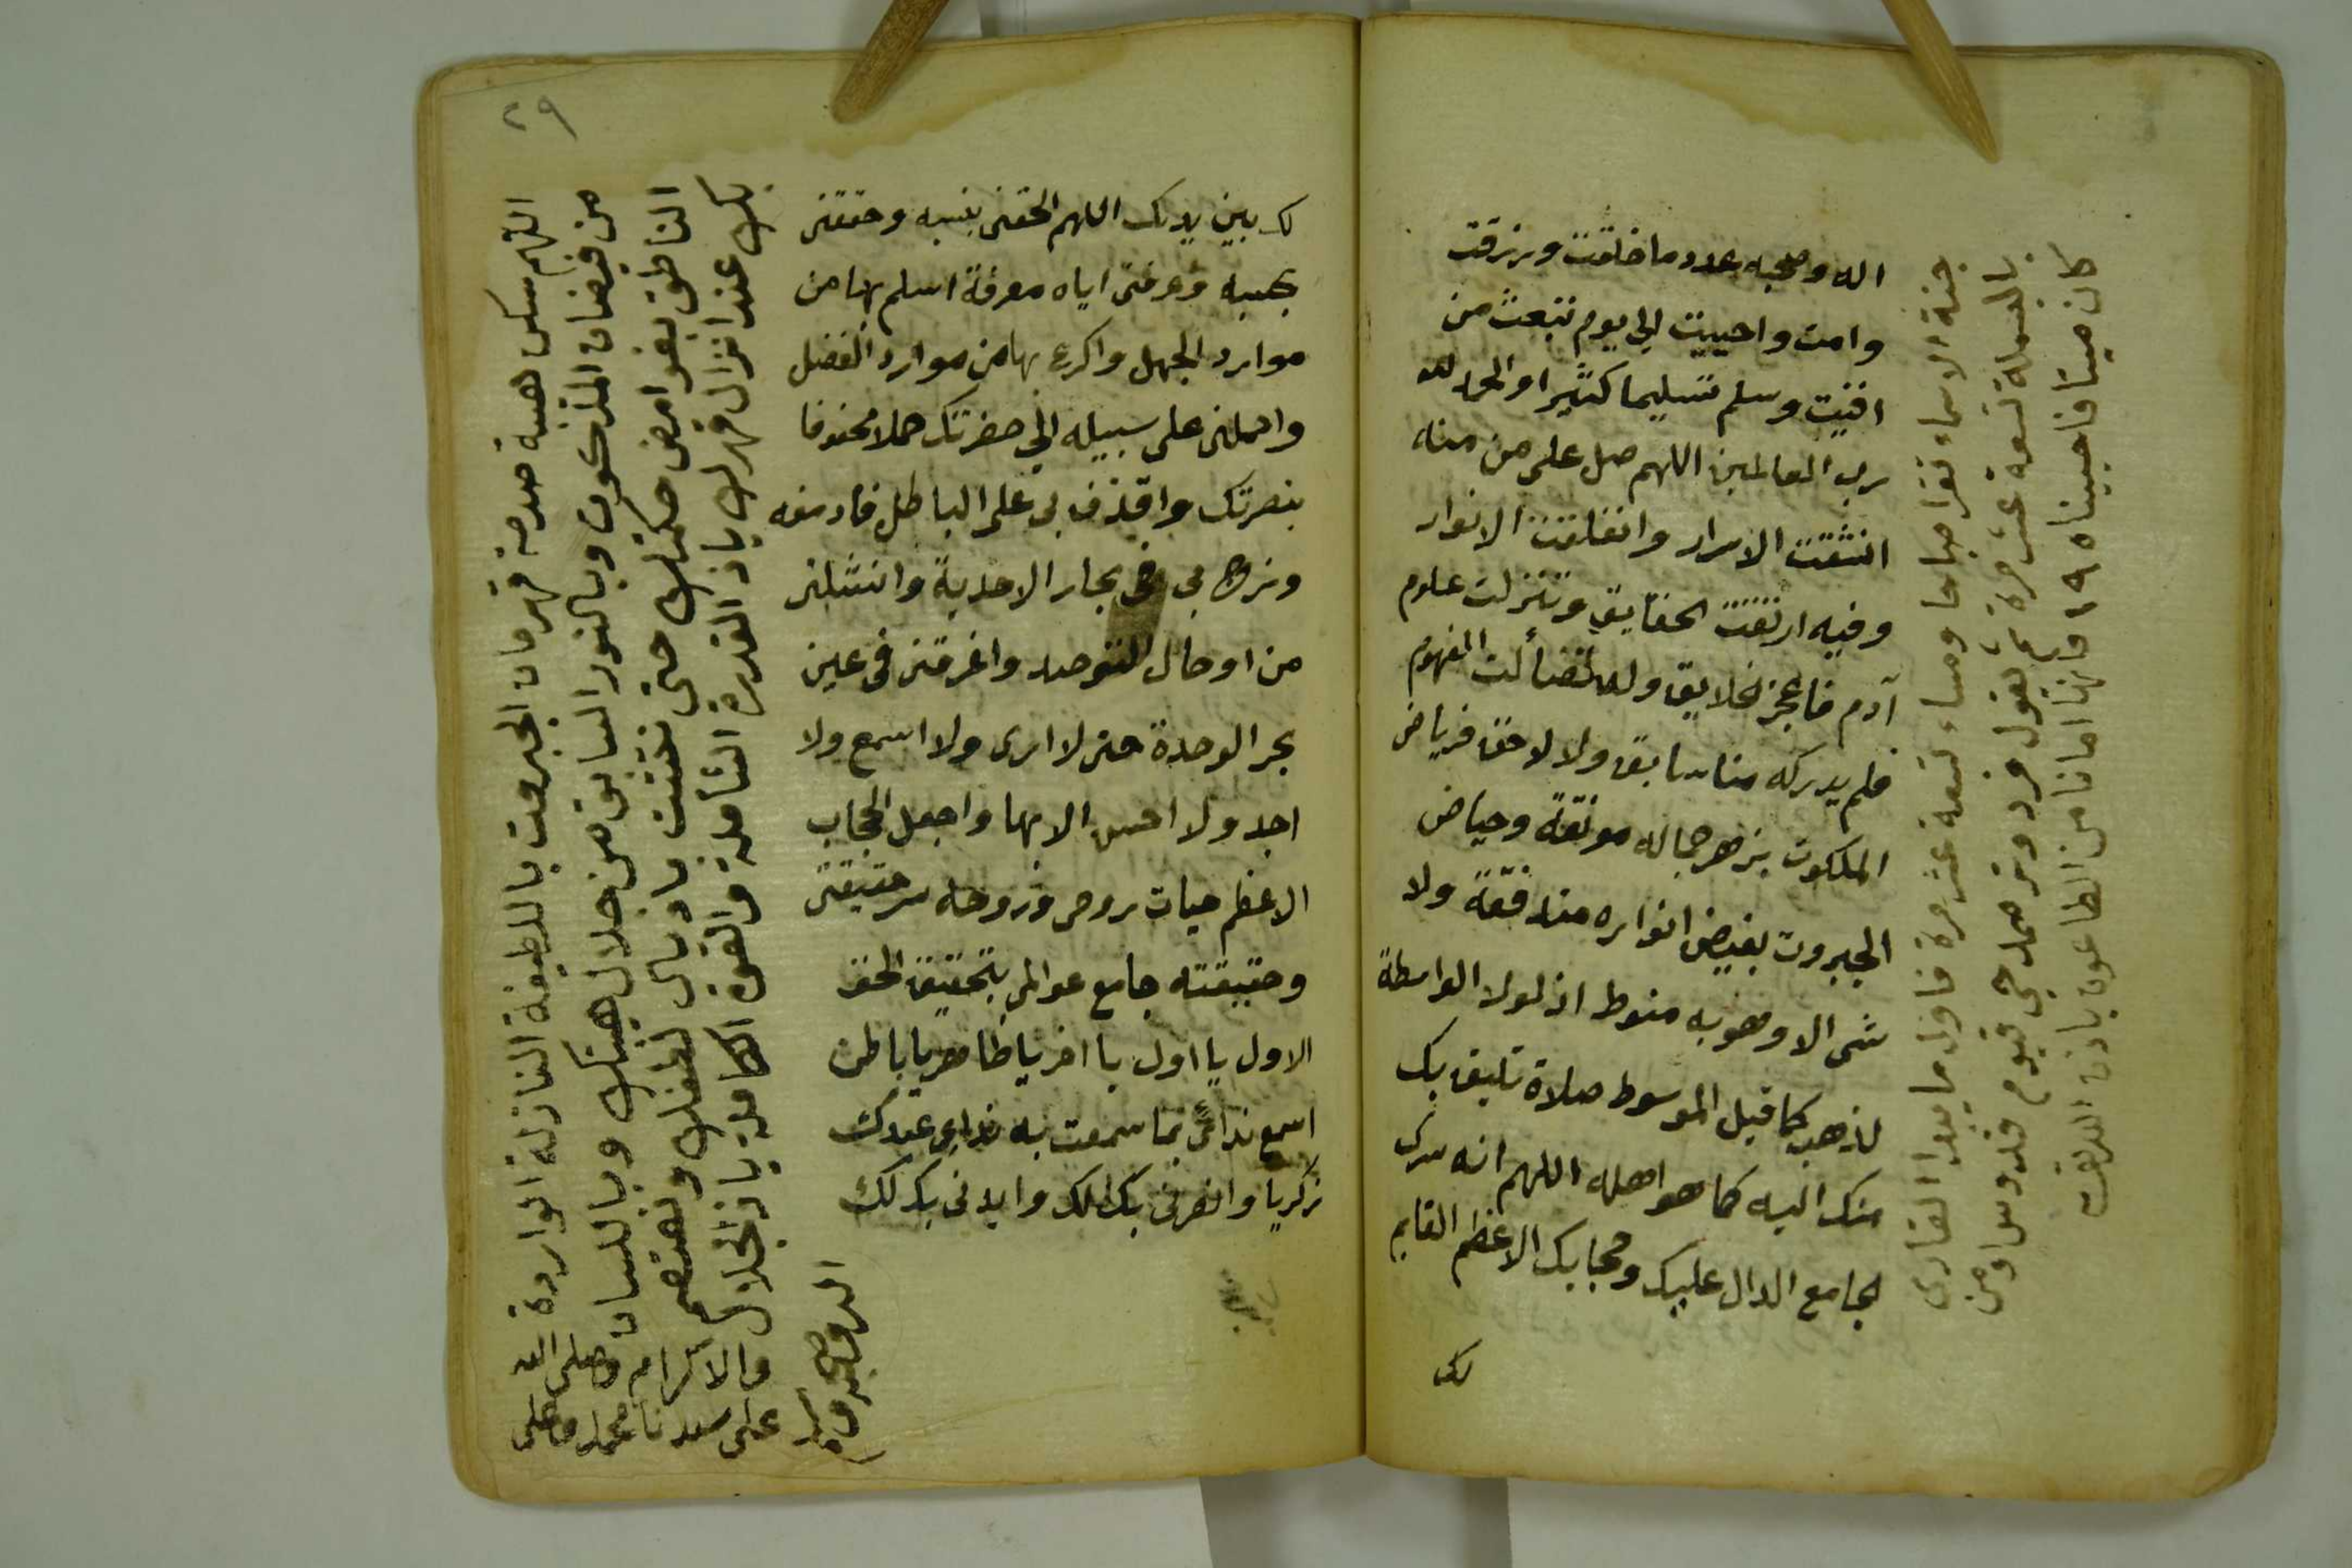 اله وصحبه عدد ما خلقت ورزقت
وامت واحييت الي يوم تبعث من
افنيت وسلم تسليما كثيرا والحمد لله
رب العالمين اللهم صل على من منه
انشقت الاسرار وانفلقت الانوار
وفيه ارتقت الحقايق وتنزلت علوم
آدم فاعجز الخلايق وله تضألت الفهوم
فلم يدركه منا سابق ولا لاحق فرياض
الملكوت بزهر جماله مونقة وحياض
الجبروت بفيض انواره متدفقة ولا
شى الا وهو به منوط اذ لولا الواسطة
لذهب كما قيل الموسوط صلاة تليق بك
منك اليه كما هو اهله اللهم انه سرك
الجامع الدال عليك وحجابك الاعظم القايم
لك
جنة الاسماء تقرا صباحا ومساء تسعة عشر مرة فاول ما يبدا القارى
بالبسملة تسعة عشر مرة ثم يقول فرد وتر صمد حي قيوم قدوس اومن
كان ميتا فاحييناه ١٩ فانها امانا من الطاعون باذن الله
٢٩
لك بين يديك اللهم الحقنى بنسبه وحققنى
بحسبه وعرفنى اياه معرفة اسلم بها من
موارد الجهل واكرع بها من موارد الفضل
واحملنى على سبيله الي حضرتك حملا محفوفا
بنصرتك واقذف بى على الباطل فادمغه
وزج بى فى بحار الاحدية وانشلنى
من اوحال التوحيد واغرقنى فى عين
بحر الوحدة حتى لا ارى ولا اسمع ولا
اجد ولا احس الا بها واجعل الحجاب
الاعظم حيات روحى وروحه سر حقيقتى
وحقيقته جامع عوالمى بتحقيق الحق
الاول يا اول يا اخر يا ظاهر يا باطن
اسمع ندائى بما سمعت به نداء عبدك
زكريا وانصرنى بك لك وايدنى بك لك
اللهم سكن هيبة صدمة قهرمان الجبروت باللطيفة النازلة الواردة
من فيضان الملكوت وبالنور السابق من جلال هيبتك وباللسان
الناطق بغوامض حكمتك حتى نتشبث باذيال لطفك ونعتصم
بك عند انزال قهرك ياذا القدرة الشاملة والقوة الكاملة ياذا الجلال
والاكرام وصلى الله
على سيدنا محمد وعلى
اله وصحبه وسلم